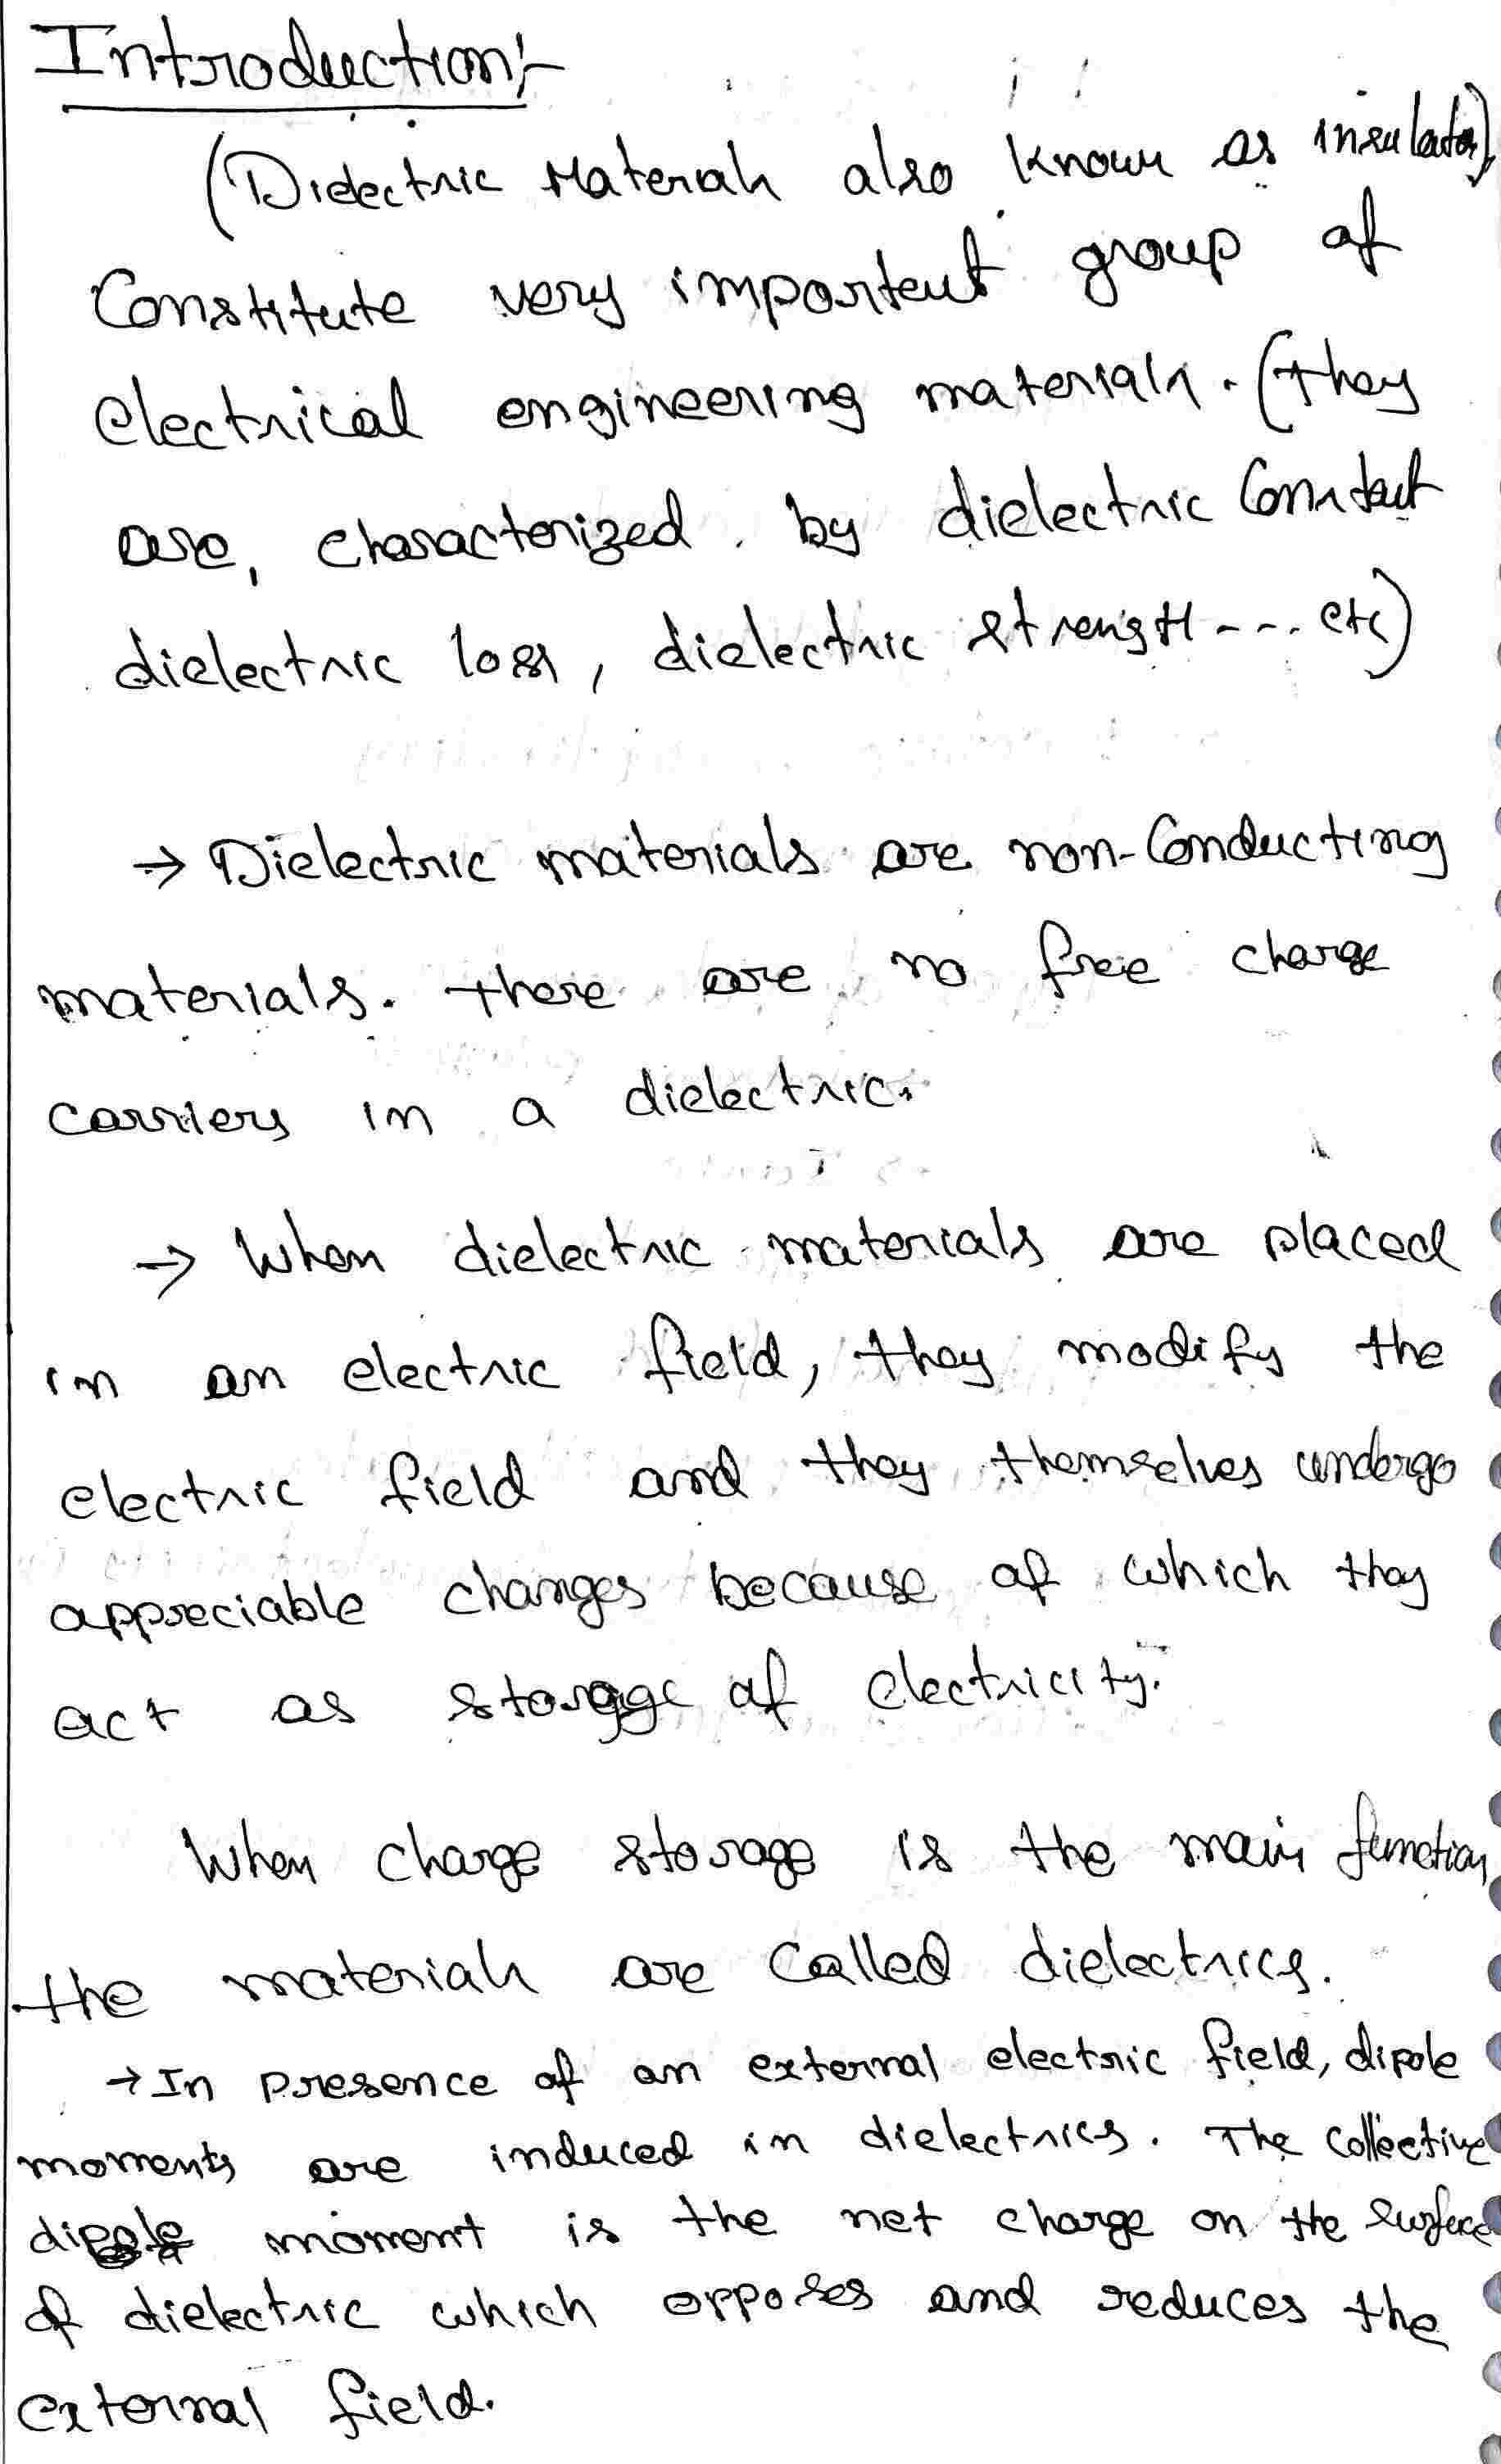 Introduction:-
(Dielectric Materials also known as insulators)
Constitute very important group of
electrical engineering materials. (they
are, characterized by dielectric Constant
dielectric loss, dielectric strength --- etc)
→ Dielectric materials are non-Conducting
materials. there are no free charge
carriers in a dielectric.
→ When dielectric materials are placed
in an electric field, they modify the
electric field and they themselves undergo
appreciable changes because of which they
act as storage of electricity.
When charge storage is the main function
the materials are Called dielectrics.
→ In presence of an external electric field, dipole
moments are induced in dielectrics. The collective
dipole moment is the net charge on the surface
of dielectric which opposes and reduces the
external field.